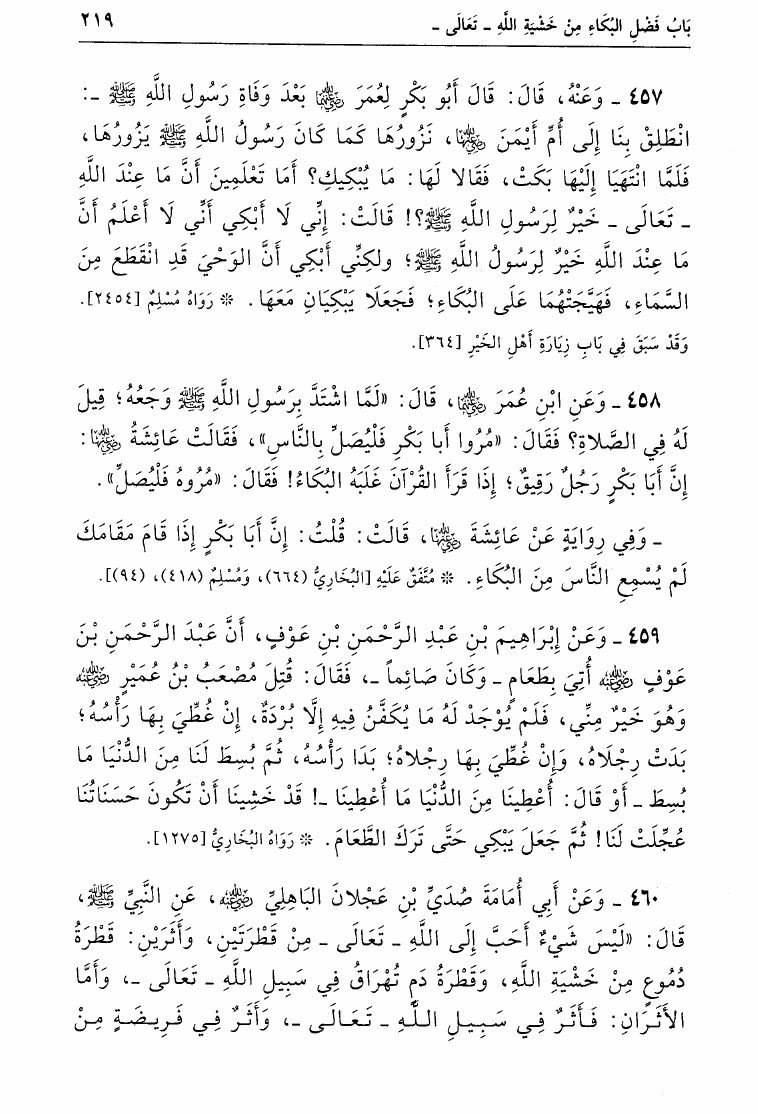 بَابُ فَضْلِ البُكَاءِ مِنْ خَشْيَةِ اللَّهِ ـ تَعَالَى ـ ٢١٩
٤٥٧ ـ وَعَنْهُ، قَالَ: قَالَ أَبُو بَكْرٍ لِعُمَرَ رضي الله عنهما بَعْدَ وَفَاةِ رَسُولِ اللَّهِ ﷺ ـ:
انْطَلِقْ بِنَا إِلَى أُمِّ أَيْمَنَ رضي الله عنها، نَزُورُهَا كَمَا كَانَ رَسُولُ اللَّهِ ﷺ يَزُورُهَا،
فَلَمَّا انْتَهَيَا إِلَيْهَا بَكَتْ، فَقَالا لَهَا: مَا يُبْكِيكِ؟ أَمَا تَعْلَمِينَ أَنَّ مَا عِنْدَ اللَّهِ
ـ تَعَالَى ـ خَيْرٌ لِرَسُولِ اللَّهِ ﷺ؟! قَالَتْ: إِنِّي لَا أَبْكِي أَنِّي لَا أَعْلَمُ أَنَّ
مَا عِنْدَ اللَّهِ خَيْرٌ لِرَسُولُ اللَّهِ ﷺ؛ ولكِنِّي أَبْكِي أَنَّ الوَحْيَ قَدِ انْقَطَعَ مِنَ
السَّمَاءِ، فَهَيَّجَتْهُمَا عَلَى البُكَاءِ؛ فَجَعَلَا يَبْكِيَانِ مَعَهَا. * رَوَاهُ مُسْلِمٌ [٢٤٥٤].
وَقَدْ سَبَقَ فِي بَابِ زِيَارَةِ أَهْلِ الخَيْرِ [٣٦٤].
٤٥٨ ـ وَعَنِ ابْنِ عُمَرَ رضي الله عنهما، قَالَ: «لَمَّا اشْتَدَّ بِرَسُولِ اللَّهِ ﷺ وَجَعُهُ؛ قِيلَ
لَهُ فِي الصَّلاةِ؟ فَقَالَ: «مُرُوا أَبا بَكْرٍ فَلْيُصَلِّ بِالنَّاسِ»، فَقَالَتْ عَائِشَةُ رضي الله عنها:
إِنَّ أَبَا بَكْرٍ رَجُلٌ رَقِيقٌ؛ إِذَا قَرَأَ القُرْآنَ غَلَبَهُ البُكَاءُ! فَقَالَ: «مُرُوهُ فَلْيُصَلِّ».
ـ وَفِي رِوَايَةٍ عَنْ عَائِشَةَ رضي الله عنها، قَالَتْ: قُلْتُ: إِنَّ أَبَا بَكْرٍ إِذَا قَامَ مَقَامَكَ
لَمْ يُسْمِعِ النَّاسَ مِنَ البُكَاءِ. * مُتَّفَقٌ عَلَيْهِ [البُخَارِيُّ (٦٦٤)، وَمُسْلِمٌ (٤١٨)، (٩٤)].
٤٥٩ ـ وَعَنْ إِبْرَاهِيمَ بْنِ عَبْدِ الرَّحْمَنِ بْنِ عَوْفٍ، أَنَّ عَبْدَ الرَّحْمَنِ بْنَ
عَوْفٍ رضي الله عنه أُتِيَ بِطَعَامٍ ـ وَكَانَ صَائِماً ـ، فَقَالَ: قُتِلَ مُصْعَبُ بْنُ عُمَيْرٍ رضي الله عنه
وَهُوَ خَيْرٌ مِنِّي، فَلَمْ يُوْجَدْ لَهُ مَا يُكَفَّنُ فِيهِ إِلَّا بُرْدَةٌ، إِنْ غُطِّيَ بِهَا رَأْسُهُ؛
بَدَتْ رِجْلَاهُ، وَإِنْ غُطِّيَ بِهَا رِجْلاهُ؛ بَدَا رَأْسُهُ، ثُمَّ بُسِطَ لَنَا مِنَ الدُّنْيَا مَا
بُسِطَ ـ أَوْ قَالَ: أُعْطِينَا مِنَ الدُّنْيَا مَا أُعْطِينَا ـ! قَدْ خَشِينَا أَنْ تَكُونَ حَسَنَاتُنَا
عُجِّلَتْ لَنَا! ثُمَّ جَعَلَ يَبْكِي حَتَّى تَرَكَ الطَّعَامَ. * رَوَاهُ البُخَارِيُّ [١٢٧٥].
٤٦٠ ـ وَعَنْ أَبِي أُمَامَةَ صُدَيِّ بْنِ عَجْلانَ البَاهِلِيِّ رضي الله عنه، عَنِ النَّبِيِّ ﷺ،
قَالَ: «لَيْسَ شَيْءٌ أَحَبَّ إِلَى اللَّهِ ـ تَعَالَى ـ مِنْ قَطْرَتَيْنِ، وَأَثَرَيْنِ: قَطْرَةُ
دُمُوعٍ مِنْ خَشْيَةِ اللَّهِ، وَقَطْرَةُ دَمٍ تُهْرَاقُ فِي سَبِيلِ اللَّهِ ـ تَعَالَى ـ، وَأَمَّا
الأَثَرَانِ: فَأَثَرٌ فِي سَبِيلِ اللَّهِ ـ تَعَالَى ـ، وَأَثَرٌ فِي فَرِيضَةٍ مِنْ